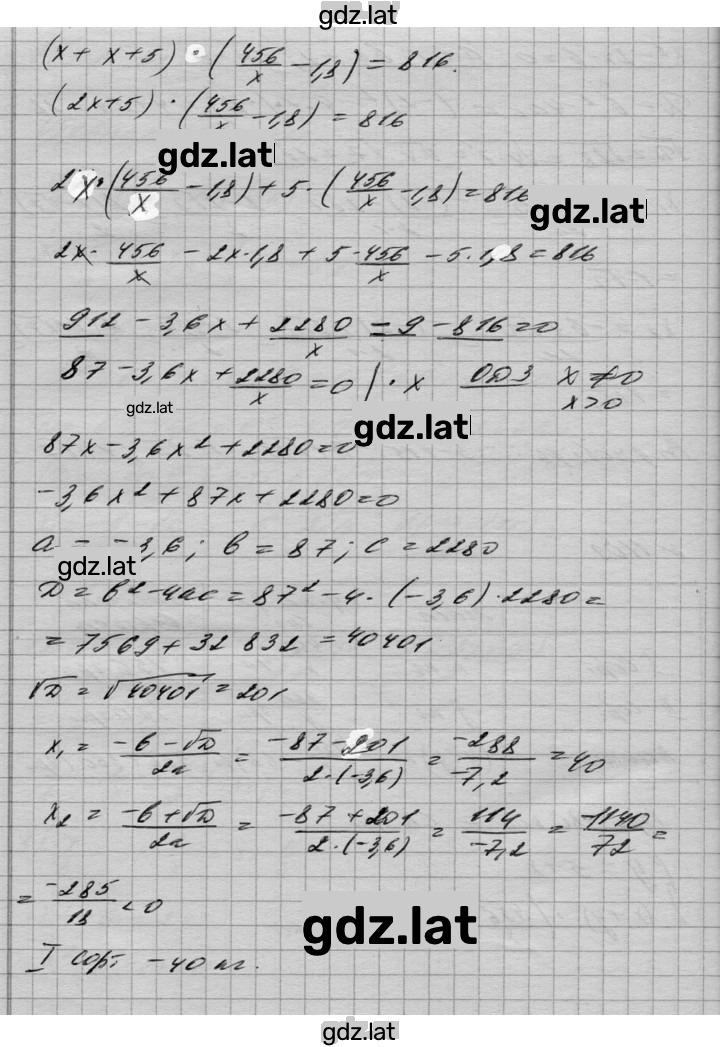 gdz.lat
(x + x + 5) · (456/x − 1,8) = 816.
(2x+5) · (456/x − 1,8) = 816
gdz.lat
2x · (456/x − 1,8) + 5 · (456/x − 1,8) = 816
gdz.lat
2x · 456/x − 2x · 1,8 + 5 · 456/x − 5 · 1,8 = 816
912 − 3,6x + 2280/x = 9 − 816 = 0
87 − 3,6x + 2280/x = 0 | · x ОДЗ x ≠ 0
x > 0
gdz.lat
gdz.lat
87x − 3,6x² + 2280 = 0
−3,6x² + 87x + 2280 = 0
a = −3,6; b = 87; c = 2280
gdz.lat
D = b² − 4ac = 87² − 4 · (−3,6) · 2280 =
= 7569 + 32 832 = 40401
√D = √40401 = 201
x₁ = −b − √D/2a = −87 − 201/2 · (−3,6) = −288/−7,2 = 40
x₂ = −b + √D/2a = −87 + 201/2 · (−3,6) = 114/−7,2 = −1140/72 =
= −285/18 < 0
gdz.lat
I сорт − 40 кг.
gdz.lat